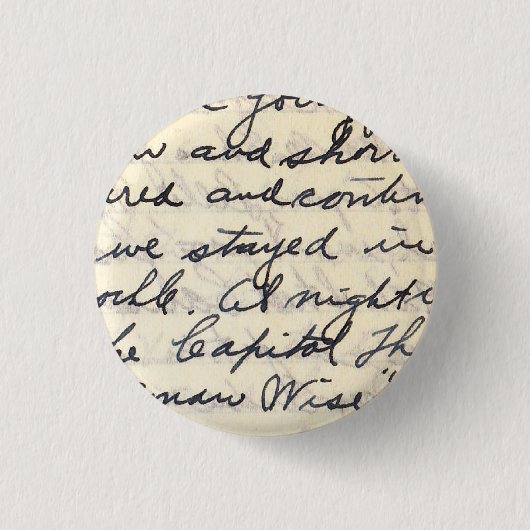 and shor
ired and contin
we stayed in
ochle. At night
e Capitol Th
man Wise"